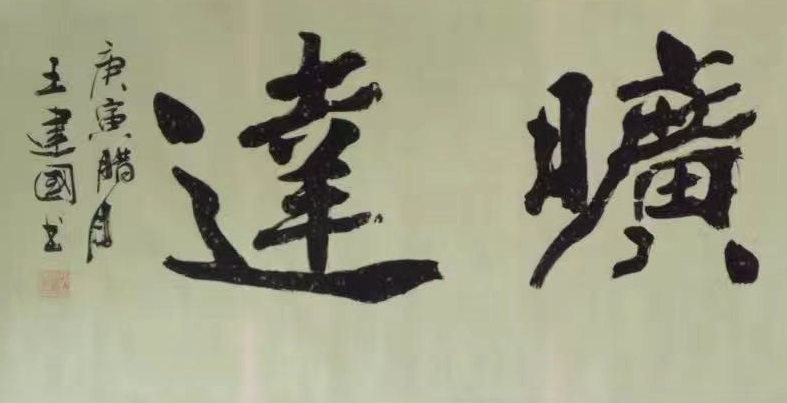 曠達
庚寅腊月
王建國书